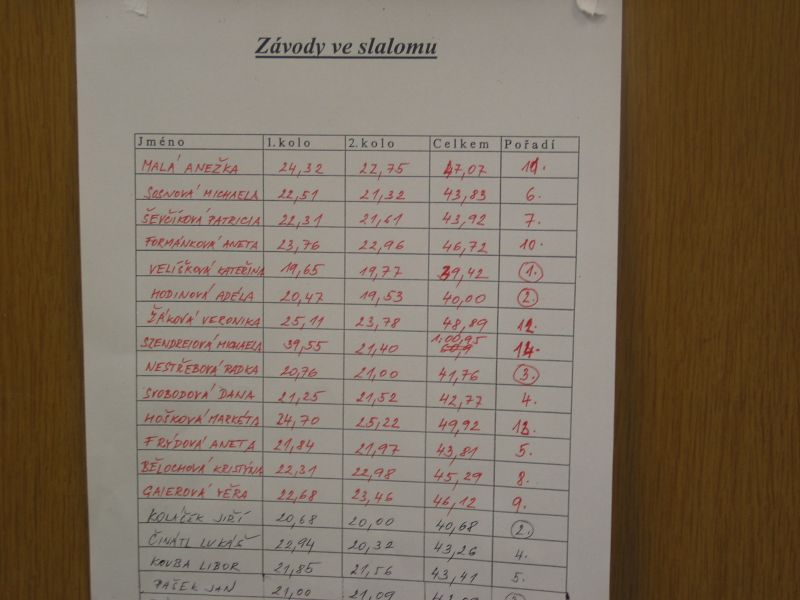 Závody ve slalomu
Jméno 1.kolo 2.kolo Celkem Pořadí
MALÁ ANEŽKA 24,32 22,75 47,07 11.
SOSNOVÁ MICHAELA 22,51 21,32 43,83 6.
ŠEVČÍKOVÁ PATRICIA 22,31 21,61 43,92 7.
FORMÁNKOVÁ ANETA 23,76 22,96 46,72 10.
VELÍŠKOVÁ KATEŘINA 19,65 19,77 39,42 1.
HODINOVÁ ADÉLA 20,47 19,53 40,00 2.
ŽÁKOVÁ VERONIKA 25,11 23,78 48,89 12.
SZENDREIOVÁ MICHAELA 39,55 21,40 1:00,95 14.
NESTŘEBOVÁ RADKA 20,76 21,00 41,76 3.
SVOBODOVÁ DANA 21,25 21,52 42,77 4.
HOŠKOVÁ MARKÉTA 24,70 25,22 49,92 13.
FRÝDOVÁ ANETA 21,84 21,97 43,81 5.
BĚLOCHOVÁ KRISTÝNA 22,31 22,98 45,29 8.
GAIEROVÁ VĚRA 22,68 23,46 46,12 9.
KOLÁČEK JIŘÍ 20,68 20,00 40,68 2.
ČINÁTL LUKÁŠ 22,94 20,32 43,26 4.
KOUBA LIBOR 21,85 21,56 43,41 5.
PAŠEK JAN 21,00 21,09